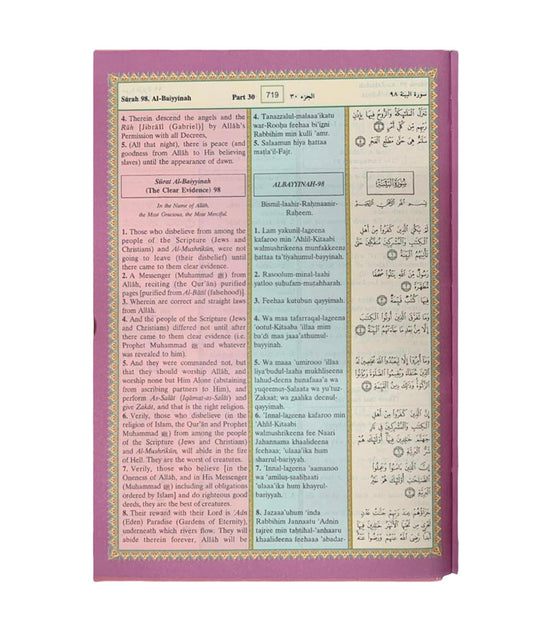 Sûrah 98. Al-Baiyyinah
Part 30
719
الجزء ٣٠
سورة البينة ٩٨
4. Therein descend the angels and the
Rûh [Jibrâîl (Gabriel)] by Allâh's
Permission with all Decrees,
5. (All that night), there is peace (and
goodness from Allâh to His believing
slaves) until the appearance of dawn.
Sûrat Al-Baiyyinah
(The Clear Evidence) 98
In the Name of Allâh,
the Most Gracious, the Most Merciful.
1. Those who disbelieve from among the
people of the Scripture (Jews and
Christians) and Al-Mushrikûn, were not
going to leave (their disbelief) until
there came to them clear evidence.
2. A Messenger (Muhammad ﷺ) from
Allâh, reciting (the Qur'ân) purified
pages [purified from Al-Bâtil (falsehood)].
3. Wherein are correct and straight laws
from Allâh.
4. And the people of the Scripture (Jews
and Christians) differed not until after
there came to them clear evidence (i.e.
Prophet Muhammad ﷺ and whatever
was revealed to him).
5. And they were commanded not, but
that they should worship Allâh, and
worship none but Him Alone (abstaining
from ascribing partners to Him), and
perform As-Salât (Iqâmat-as-Salât) and
give Zakât, and that is the right religion.
6. Verily, those who disbelieve (in the
religion of Islam, the Qur'ân and Prophet
Muhammad ﷺ) from among the people
of the Scripture (Jews and Christians)
and Al-Mushrikûn, will abide in the fire
of Hell. They are the worst of creatures.
7. Verily, those who believe [in the
Oneness of Allâh, and in His Messenger
(Muhammad ﷺ) including all obligations
ordered by Islam] and do righteous good
deeds, they are the best of creatures.
8. Their reward with their Lord is 'Adn
(Eden) Paradise (Gardens of Eternity),
underneath which rivers flow. They will
abide therein forever, Allâh will be
4. Tanazzalul-malaaa'ikatu
war-Roohu feehaa bi'igni
Rabbihim min kulli 'amr.
5. Salaamun hiya hattaa
matla'il-Fajr.
ALBAYYINAH-98
Bismil-laahir-Rahmaanir-
Raheem.
1. Lam yakunil-lageena
kafaroo min 'Ahlil-Kitaabi
walmushrikeena munfakkeena
hattaa ta'tiyahumul-bayyinah.
2. Rasoolum-minal-laahi
yatloo suhufam-mutahharah.
3. Feehaa kutubun qayyimah.
4. Wa maa tafarraqal-lageena
'ootul-Kitaaba 'illaa mim
ba'di maa jaaa'athumul-
bayyinah.
5. Wa maaa 'umirooo 'illaa
liya'budul-laaha mukhliseena
lahud-deena hunafaaa'a wa
yuqeemus-Salaata wa yu'tuz-
Zakaat; wa zaalika deenul-
qayyimah.
6. 'Innal-lageena kafaroo min
'Ahlil-Kitaabi
walmushrikeena fee Naari
Jahannama khaalideena
feehaa; 'ulaaa'ika hum
sharrul-bariyyah.
7. 'Innal-lageena 'aamanoo
wa 'amilus-saalihaati
'ulaaa'ika hum khayrul-
bariyyah.
8. Jazaaa'uhum 'inda
Rabbihim Jannaatu 'Adnin
tajree min tahtihal-'anhaaru
khaalideena feehaaa 'abadar-
تَنَزَّلُ الْمَلَائِكَةُ وَالرُّوحُ فِيهَا بِإِذْنِ
رَبِّهِم مِّن كُلِّ أَمْرٍ ۝٤
سَلَامٌ هِيَ حَتَّىٰ مَطْلَعِ الْفَجْرِ ۝٥
سُورَةُ الْبَيِّنَةِ
بِسْمِ اللَّهِ الرَّحْمَٰنِ الرَّحِيمِ
لَمْ يَكُنِ الَّذِينَ كَفَرُوا مِنْ أَهْلِ
الْكِتَابِ وَالْمُشْرِكِينَ مُنفَكِّينَ حَتَّىٰ
تَأْتِيَهُمُ الْبَيِّنَةُ ۝١
رَسُولٌ مِّنَ اللَّهِ يَتْلُو صُحُفًا
مُّطَهَّرَةً ۝٢
فِيهَا كُتُبٌ قَيِّمَةٌ ۝٣
وَمَا تَفَرَّقَ الَّذِينَ أُوتُوا الْكِتَابَ
إِلَّا مِن بَعْدِ مَا جَاءَتْهُمُ الْبَيِّنَةُ ۝٤
وَمَا أُمِرُوا إِلَّا لِيَعْبُدُوا اللَّهَ مُخْلِصِينَ لَهُ
الدِّينَ حُنَفَاءَ وَيُقِيمُوا الصَّلَاةَ وَيُؤْتُوا
الزَّكَاةَ وَذَٰلِكَ دِينُ الْقَيِّمَةِ ۝٥
إِنَّ الَّذِينَ كَفَرُوا مِنْ أَهْلِ
الْكِتَابِ وَالْمُشْرِكِينَ فِي نَارِ
جَهَنَّمَ خَالِدِينَ فِيهَا أُولَٰئِكَ هُمْ
شَرُّ الْبَرِيَّةِ ۝٦
إِنَّ الَّذِينَ آمَنُوا وَعَمِلُوا
الصَّالِحَاتِ أُولَٰئِكَ هُمْ خَيْرُ
الْبَرِيَّةِ ۝٧
جَزَاؤُهُمْ عِندَ رَبِّهِمْ جَنَّاتُ عَدْنٍ
تَجْرِي مِن تَحْتِهَا الْأَنْهَارُ
خَالِدِينَ فِيهَا أَبَدًا
رَّضِيَ اللَّهُ عَنْهُمْ وَرَضُوا عَنْهُ